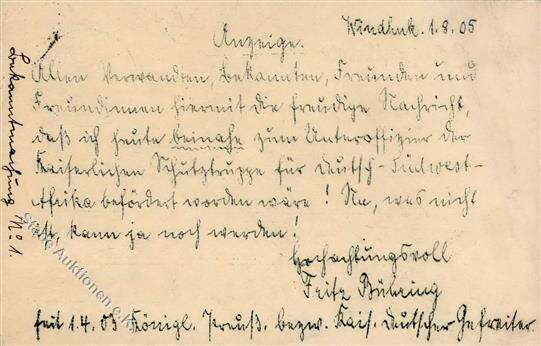 Windhuk, 1.8.05
Anzeige.
Allen Verwandten, Bekannten, Freunden und
Freundinnen hiermit die freudige Nachricht,
daß ich heute beinahe zum Unteroffizier der
Kaiserlichen Schutztruppe für Deutsch-Südwest-
Afrika befördert worden wäre! Na, was nicht
ist, kann ja noch werden!
Hochachtungsvoll
Fritz Bühring
seit 1.4.05 Königl. Preuß. bezw. Kais. Deutscher Gefreiter.
Bekanntmachung No 1.